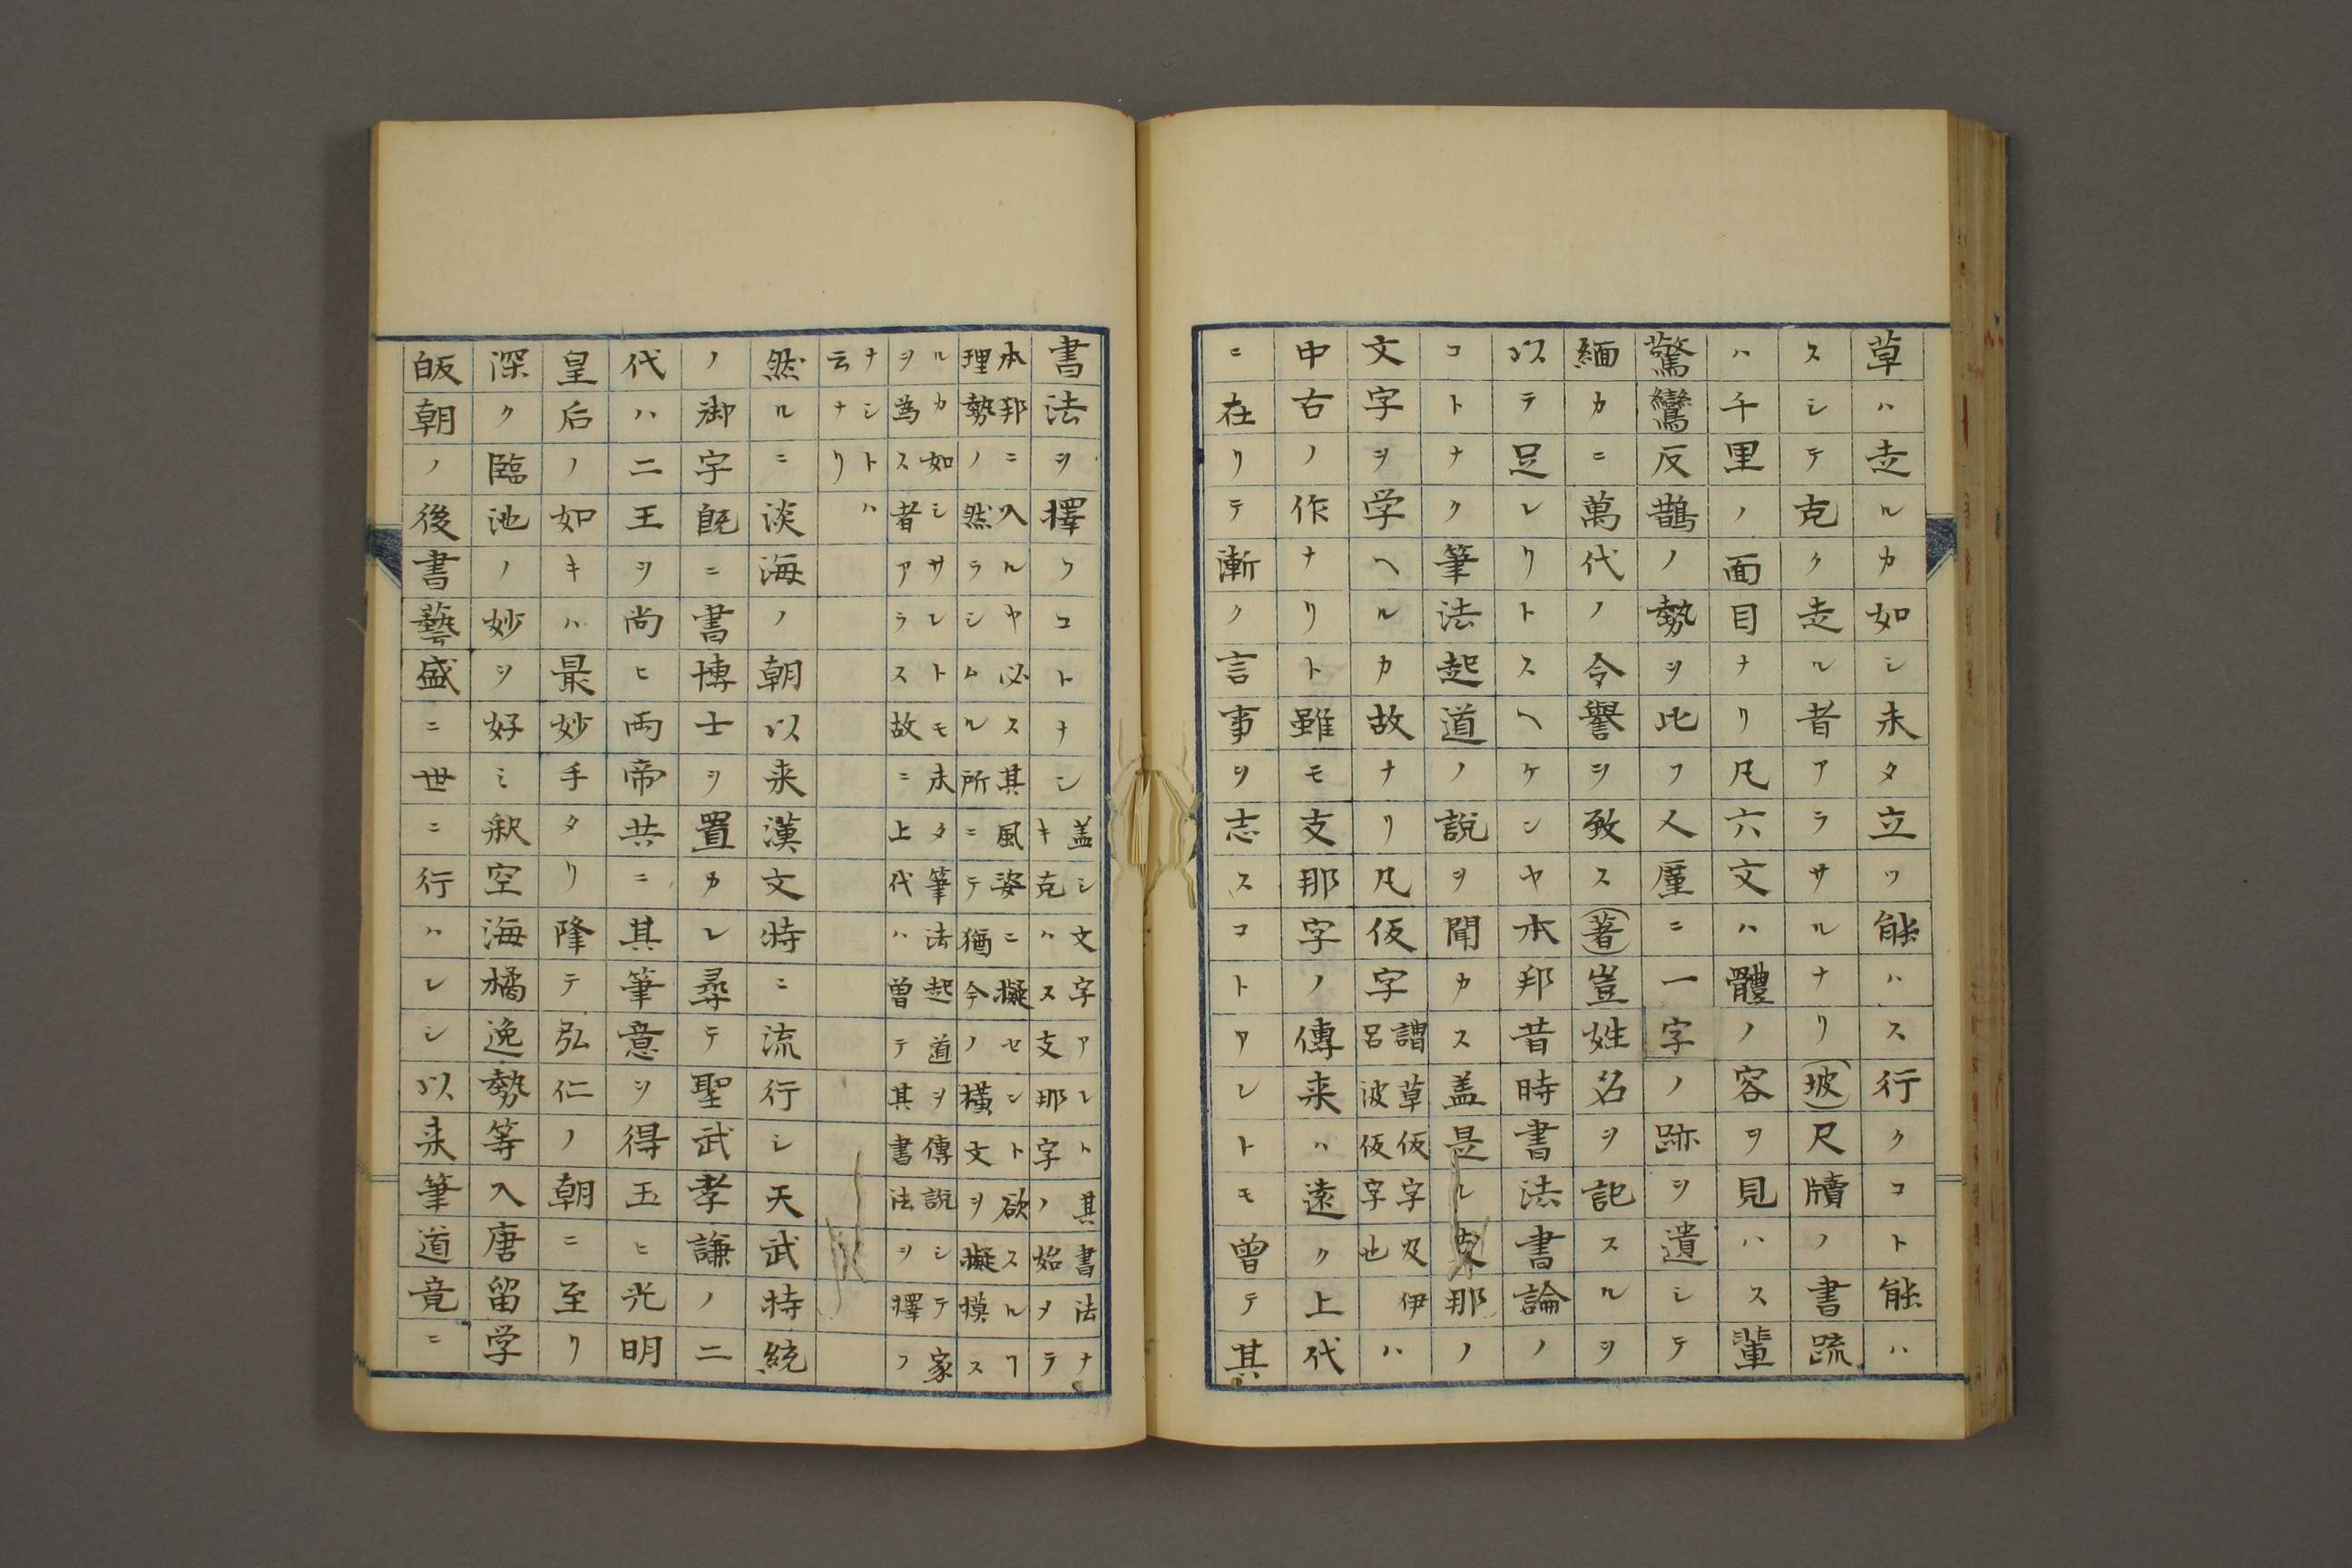 草ハ走ルカ如シ未タ立ツ能ハス行クコト能ハ
スシテ克ク走ル者アラサルナリ(坡)尺牘ノ書疏
ハ千里ノ面目ナリ凡六文ハ體ノ容ヲ見ハス輩
驚鸞反鵲ノ勢ヲ比フ人厪ニ一字ノ跡ヲ遺シテ
緬カニ萬代ノ令譽ヲ致ス(著)豈姓名ヲ記スルヲ
以テ足レリトスヘケンヤ本邦昔時書法書論ノ
コトナク筆法起道ノ説ヲ聞カス盖是レ支那ノ
文字ヲ学ヘルカ故ナリ凡仮字謂草仮字及伊呂波仮字也ハ
中古ノ作ナリト雖モ支那字ノ傳来ハ遠ク上代
ニ在リテ漸ク言事ヲ志スコトアレトモ曽テ其
書法ヲ擇フコトナシ盖シ文字アレト其書法ナキハス支那字ノ始ヲテ
本邦ニ入ルヤ必ス其風姿ニ擬セント欲スルフ
理勢ノ然ラシムル所ニテ猶今ノ横文ヲ擬模ス
ルカ如シサレトモ未タ筆法起道ヲ傳説シテ家
ヲ為ス者アラス故ニ上代ハ曽テ其書法ヲ擇フ
ナシトハ
云ナリ
然ルニ淡海ノ朝以来漢文特ニ流行シ天武持統
ノ御宇既ニ書博士ヲ置カレ尋テ聖武孝謙ノ二
代ハ二王ヲ尚ヒ両帝共ニ其筆意ヲ得玉ヒ光明
皇后ノ如キハ最妙手タリ降テ弘仁ノ朝ニ至リ
深ク臨池ノ妙ヲ好ミ釈空海橘逸勢等入唐留学
皈朝ノ後書藝盛ニ世ニ行ハレシ以来筆道竟ニ